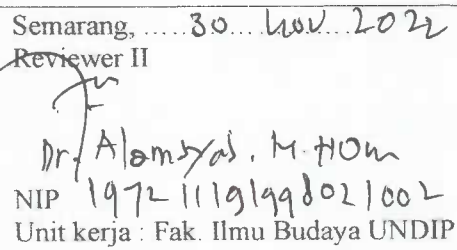 Semarang, ..... 30 ... Nov ... 2022
Reviewer II
Dr. Alamsyah, M. HOm
NIP 197211191998021002
Unit kerja : Fak. Ilmu Budaya UNDIP